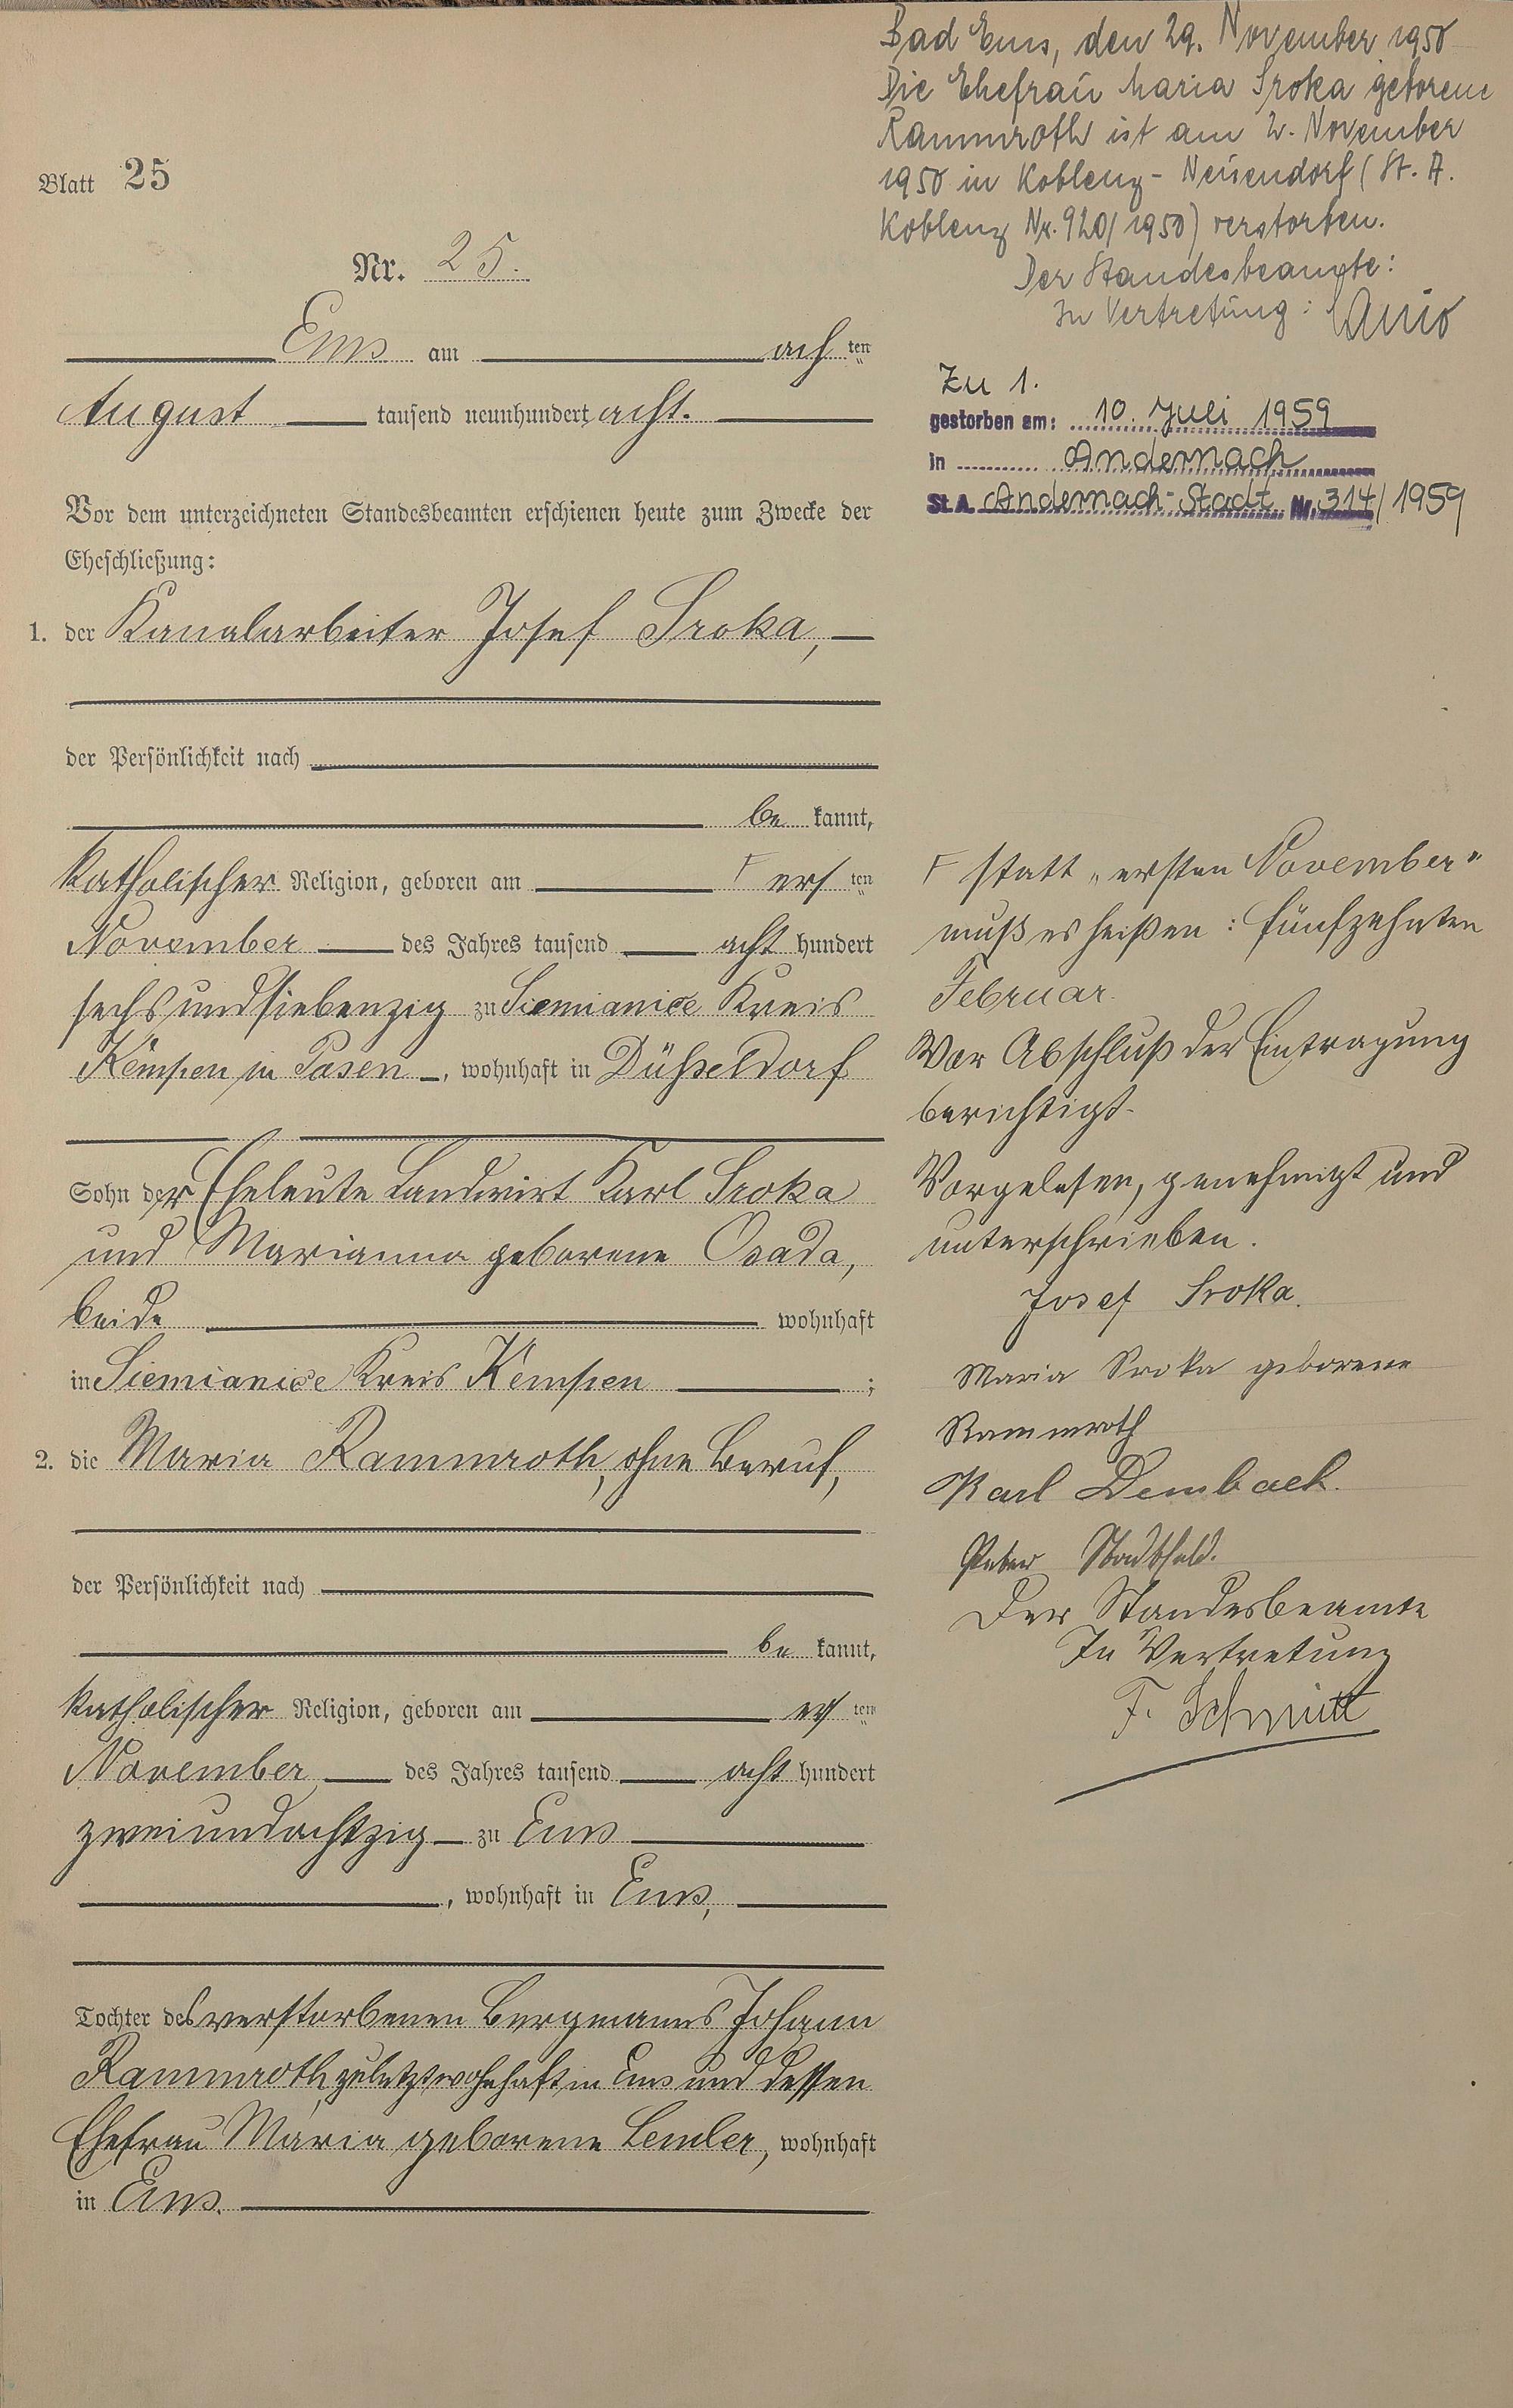 Blatt 25
Nr. 25.
Ems am achten
August tausend neunhundert acht.
Vor dem unterzeichneten Standesbeamten erschienen heute zum Zwecke der
Eheschließung:
1. der Kanalarbeiter Josef Sroka,
der Persönlichkeit nach
be kannt,
katholischer Religion, geboren am F ersten
November des Jahres tausend acht hundert
sechsundsiebenzig zu Siemianice Kreis
Kempen in Posen, wohnhaft in Düsseldorf
Sohn der Eheleute Landwirt Karl Sroka
und Marianna geborene Osada,
beide wohnhaft
in Siemianice Kreis Kempen;
2. die Maria Rammroth, ohne Beruf,
der Persönlichkeit nach
be kannt,
katholischer Religion, geboren am ersten
November des Jahres tausend acht hundert
zweiundachtzig zu Ems
, wohnhaft in Ems,
Tochter des verstorbenen Bergmanns Johann
Rammroth, zuletzt wohnhaft in Ems und dessen
Ehefrau Maria geborene Lemler, wohnhaft
in Ems.
Bad Ems, den 29. November 1950
Die Ehefrau Maria Sroka geborene
Rammroth ist am 2. November
1950 in Koblenz-Neuendorf (St. A.
Koblenz Nr. 920/1950) verstorben.
Der Standesbeamte:
In Vertretung:
Zu 1.
gestorben am: 10. Juli 1959
in Andernach
St. A. Andernach-Stadt Nr. 314/1959
F statt „ersten November"
muß es heißen: fünfzehnten
Februar.
Vor Abschluß der Eintragung
berichtigt.
Vorgelesen, genehmigt und
unterschrieben.
Josef Sroka.
Maria Sroka geborene
Rammroth
Karl Dembach.
Peter Stadtfeld.
Der Standesbeamte
In Vertretung
F. Schmitt